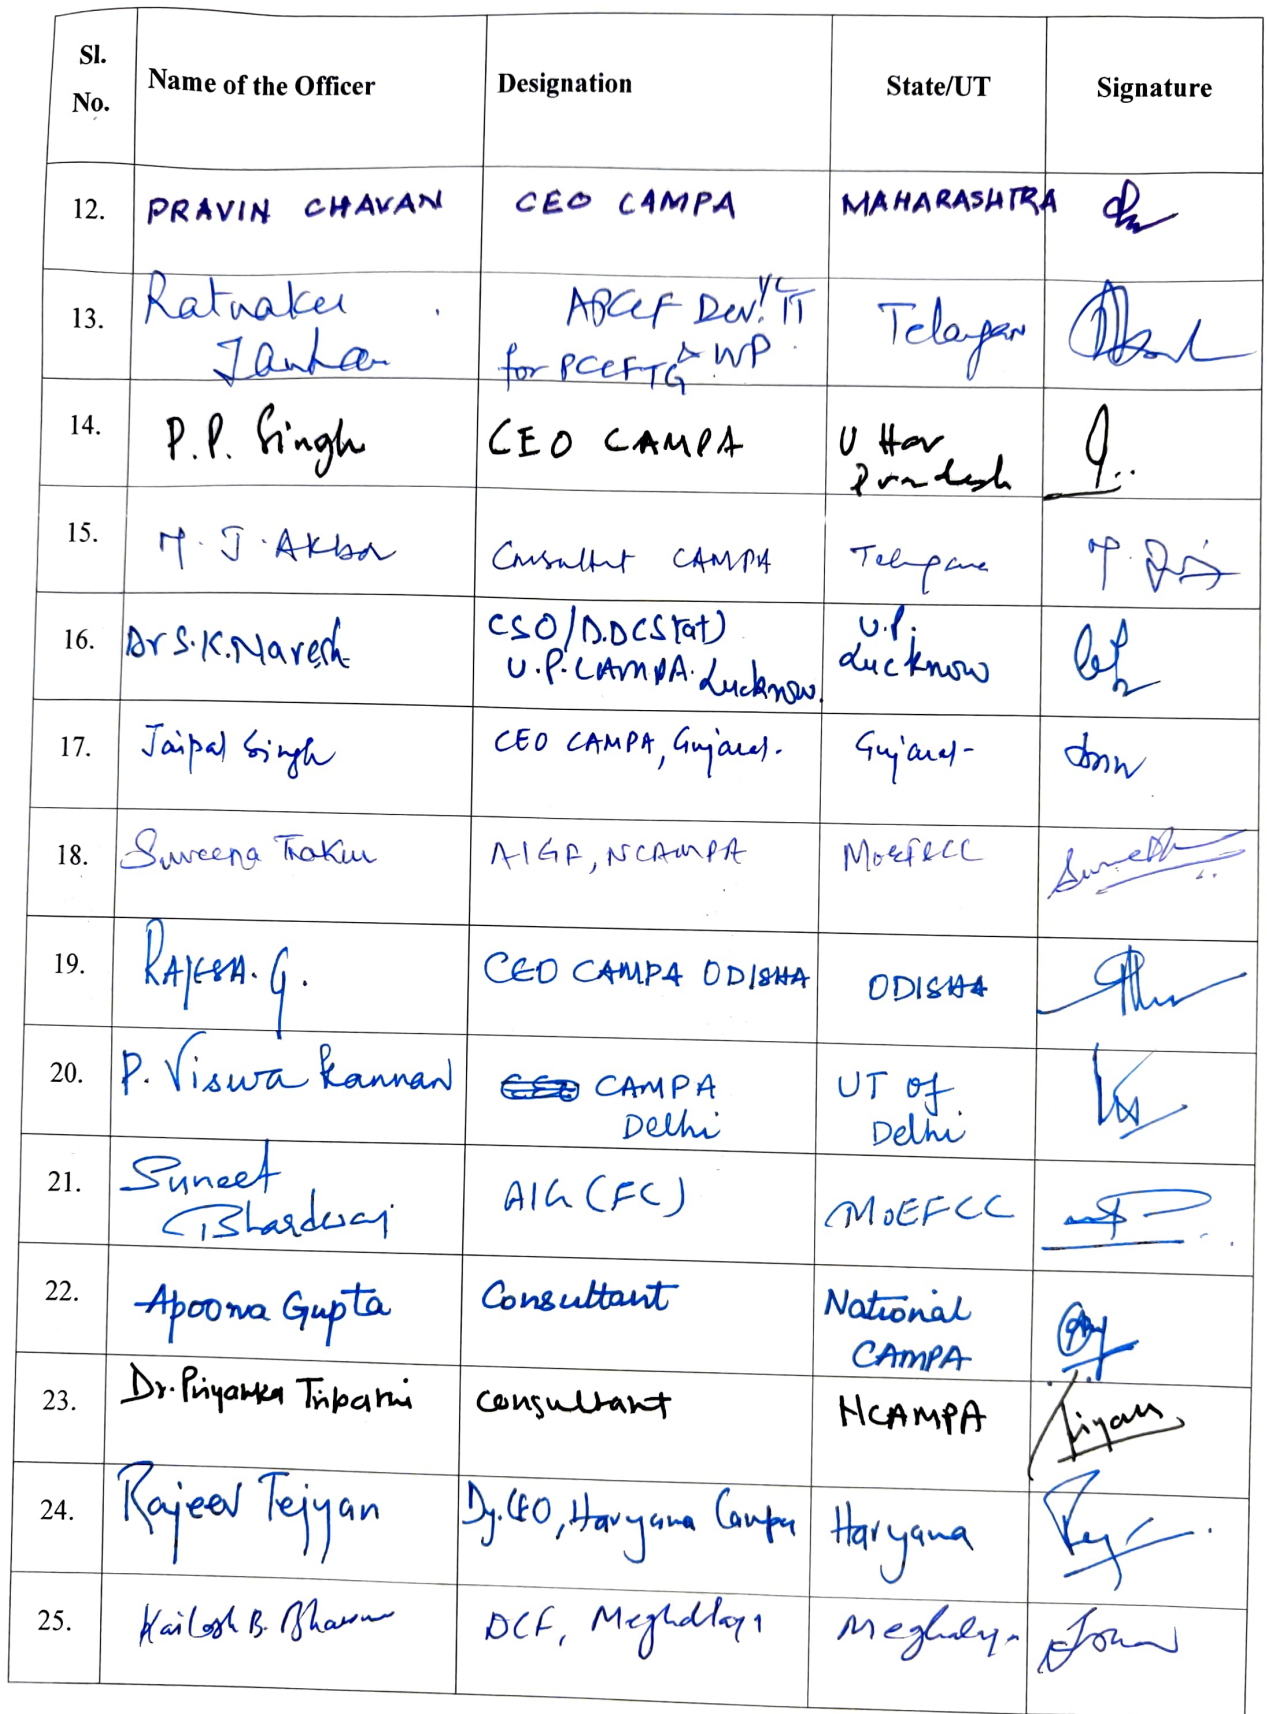 Sl. No. Name of the Officer Designation State/UT Signature
12. PRAVIN CHAVAN CEO CAMPA MAHARASHTRA
13. Ratnaker
I/C
APCCF Dev! IT
for PCCF TG & WP
14. P.P. Singh CEO CAMPA Uttar
Pradesh
15. M. J. Akbar Consultant CAMPA Telangana
16. Dr S.K.Naresh CSO/D.D(Stat) U.P.
U.P. CAMPA. Lucknow. Lucknow
17. Jaipal Singh CEO CAMPA, Gujarat. Gujarat
18. Suveena Thakur AIGF, NCAMPA MoEF&CC
19. RAJESH. G. CEO CAMPA ODISHA ODISHA
20. P. Viswa Kannan CAMPA UT of
Delhi Delhi
21. Suneet AIG (FC) MoEFCC
Bhardwaj
22. Apoorva Gupta Consultant National
CAMPA
23. Dr. Priyanka Tripathi Consultant NCAMPA
24. Rajeev Tejyan Dy. CEO, Haryana Campa Haryana
25. Kailash B. DCF, Meghalaya Meghalaya